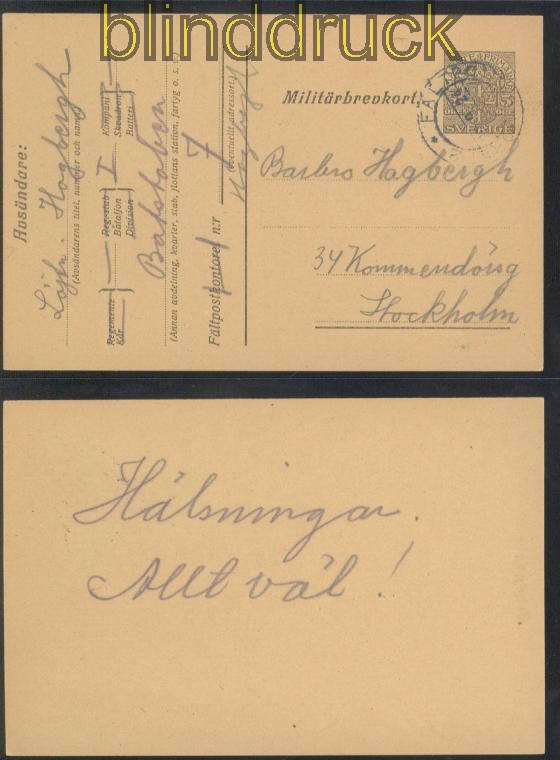 blinddruck
Avsändare:
Löjtn. Hagbergh
(Avsändarens titel, nummer och namn)
Regemente
Kår
Reg:stab
Bataljon
Division
I
Kompani
Skvadron
Batteri
Batstaben
(Annan avdelning, kvarter, stab, flottans station, fartyg o. s. v.)
Fältpostkontoret n:r 7
(eventuellt adressort)
Militärbrevkort.
SVERIGE
Barbro Hagbergh
34 Kommendörsg
Stockholm
Hälsningar.
Allt väl!